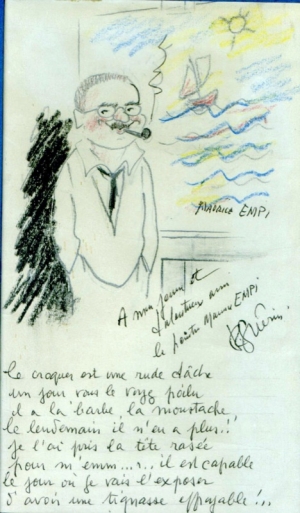 MAURICE EMPI
A mon jeune et
talentueux ami
le peintre Maurice EMPI
Le croquer est une rude tâche
un jour vous le voyez poilu
il a la barbe, la moustache,
le lendemain il n'en a plus!!
je l'ai pris la tête rasée
pour m'emm...r.. il est capable
le jour où je vais l'exposer
d'avoir une tignasse effroyable!...